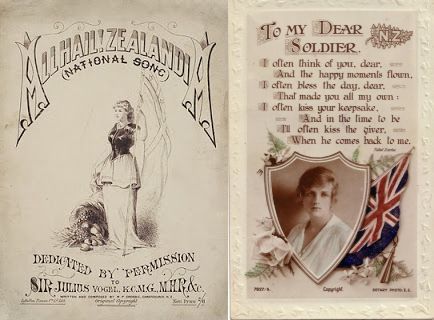 ALL HAIL! ZEALANDIA
(NATIONAL SONG)
DEDICATED BY PERMISSION
TO
SIR JULIUS VOGEL, K.C.M.G., M.H.R. &c.
WRITTEN AND COMPOSED BY
Original Copyright
TO MY DEAR
SOLDIER.
NZ
I often think of you, dear,
And the happy moments flown,
I often bless the day, dear,
That made you all my own:
I often kiss your keepsake,
And in the time to be
I'll often kiss the giver,
When he comes back to me.
Copyright.
ROTARY PHOTO. E.C.